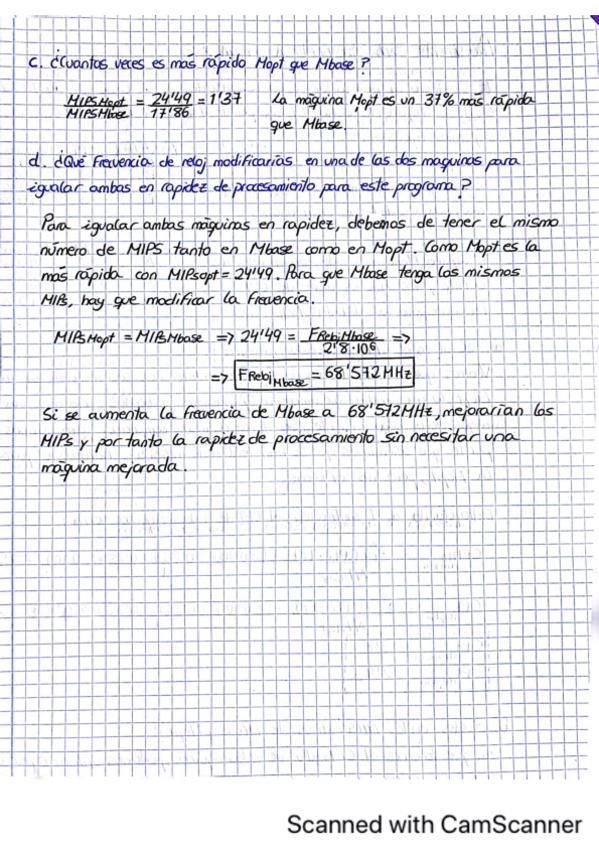 c. ¿Cuantas veces es más rápido Mopt que Mbase?
MIPSMopt / MIPSMbase = 24'49 / 17'86 = 1'37 La máquina Mopt es un 37% más rápida
que Mbase.
d. ¿Qué Frecuencia de reloj modificarías en una de las dos maquinas para
igualar ambas en rapidez de procesamiento para este programa?
Para igualar ambas máquinas en rapidez, debemos de tener el mismo
número de MIPS tanto en Mbase como en Mopt. Como Mopt es la
más rápida con MIPSopt = 24'49. Para que Mbase tenga los mismos
MIPs, hay que modificar la frecuencia.
MIPSMopt = MIPSMbase => 24'49 = FReloj Mbase / 2'8·10⁶ =>
=> FReloj Mbase = 68'572 MHz
Si se aumenta la frecuencia de Mbase a 68'572MHz, mejorarían los
MIPs y por tanto la rapidez de procesamiento sin necesitar una
máquina mejorada.
Scanned with CamScanner